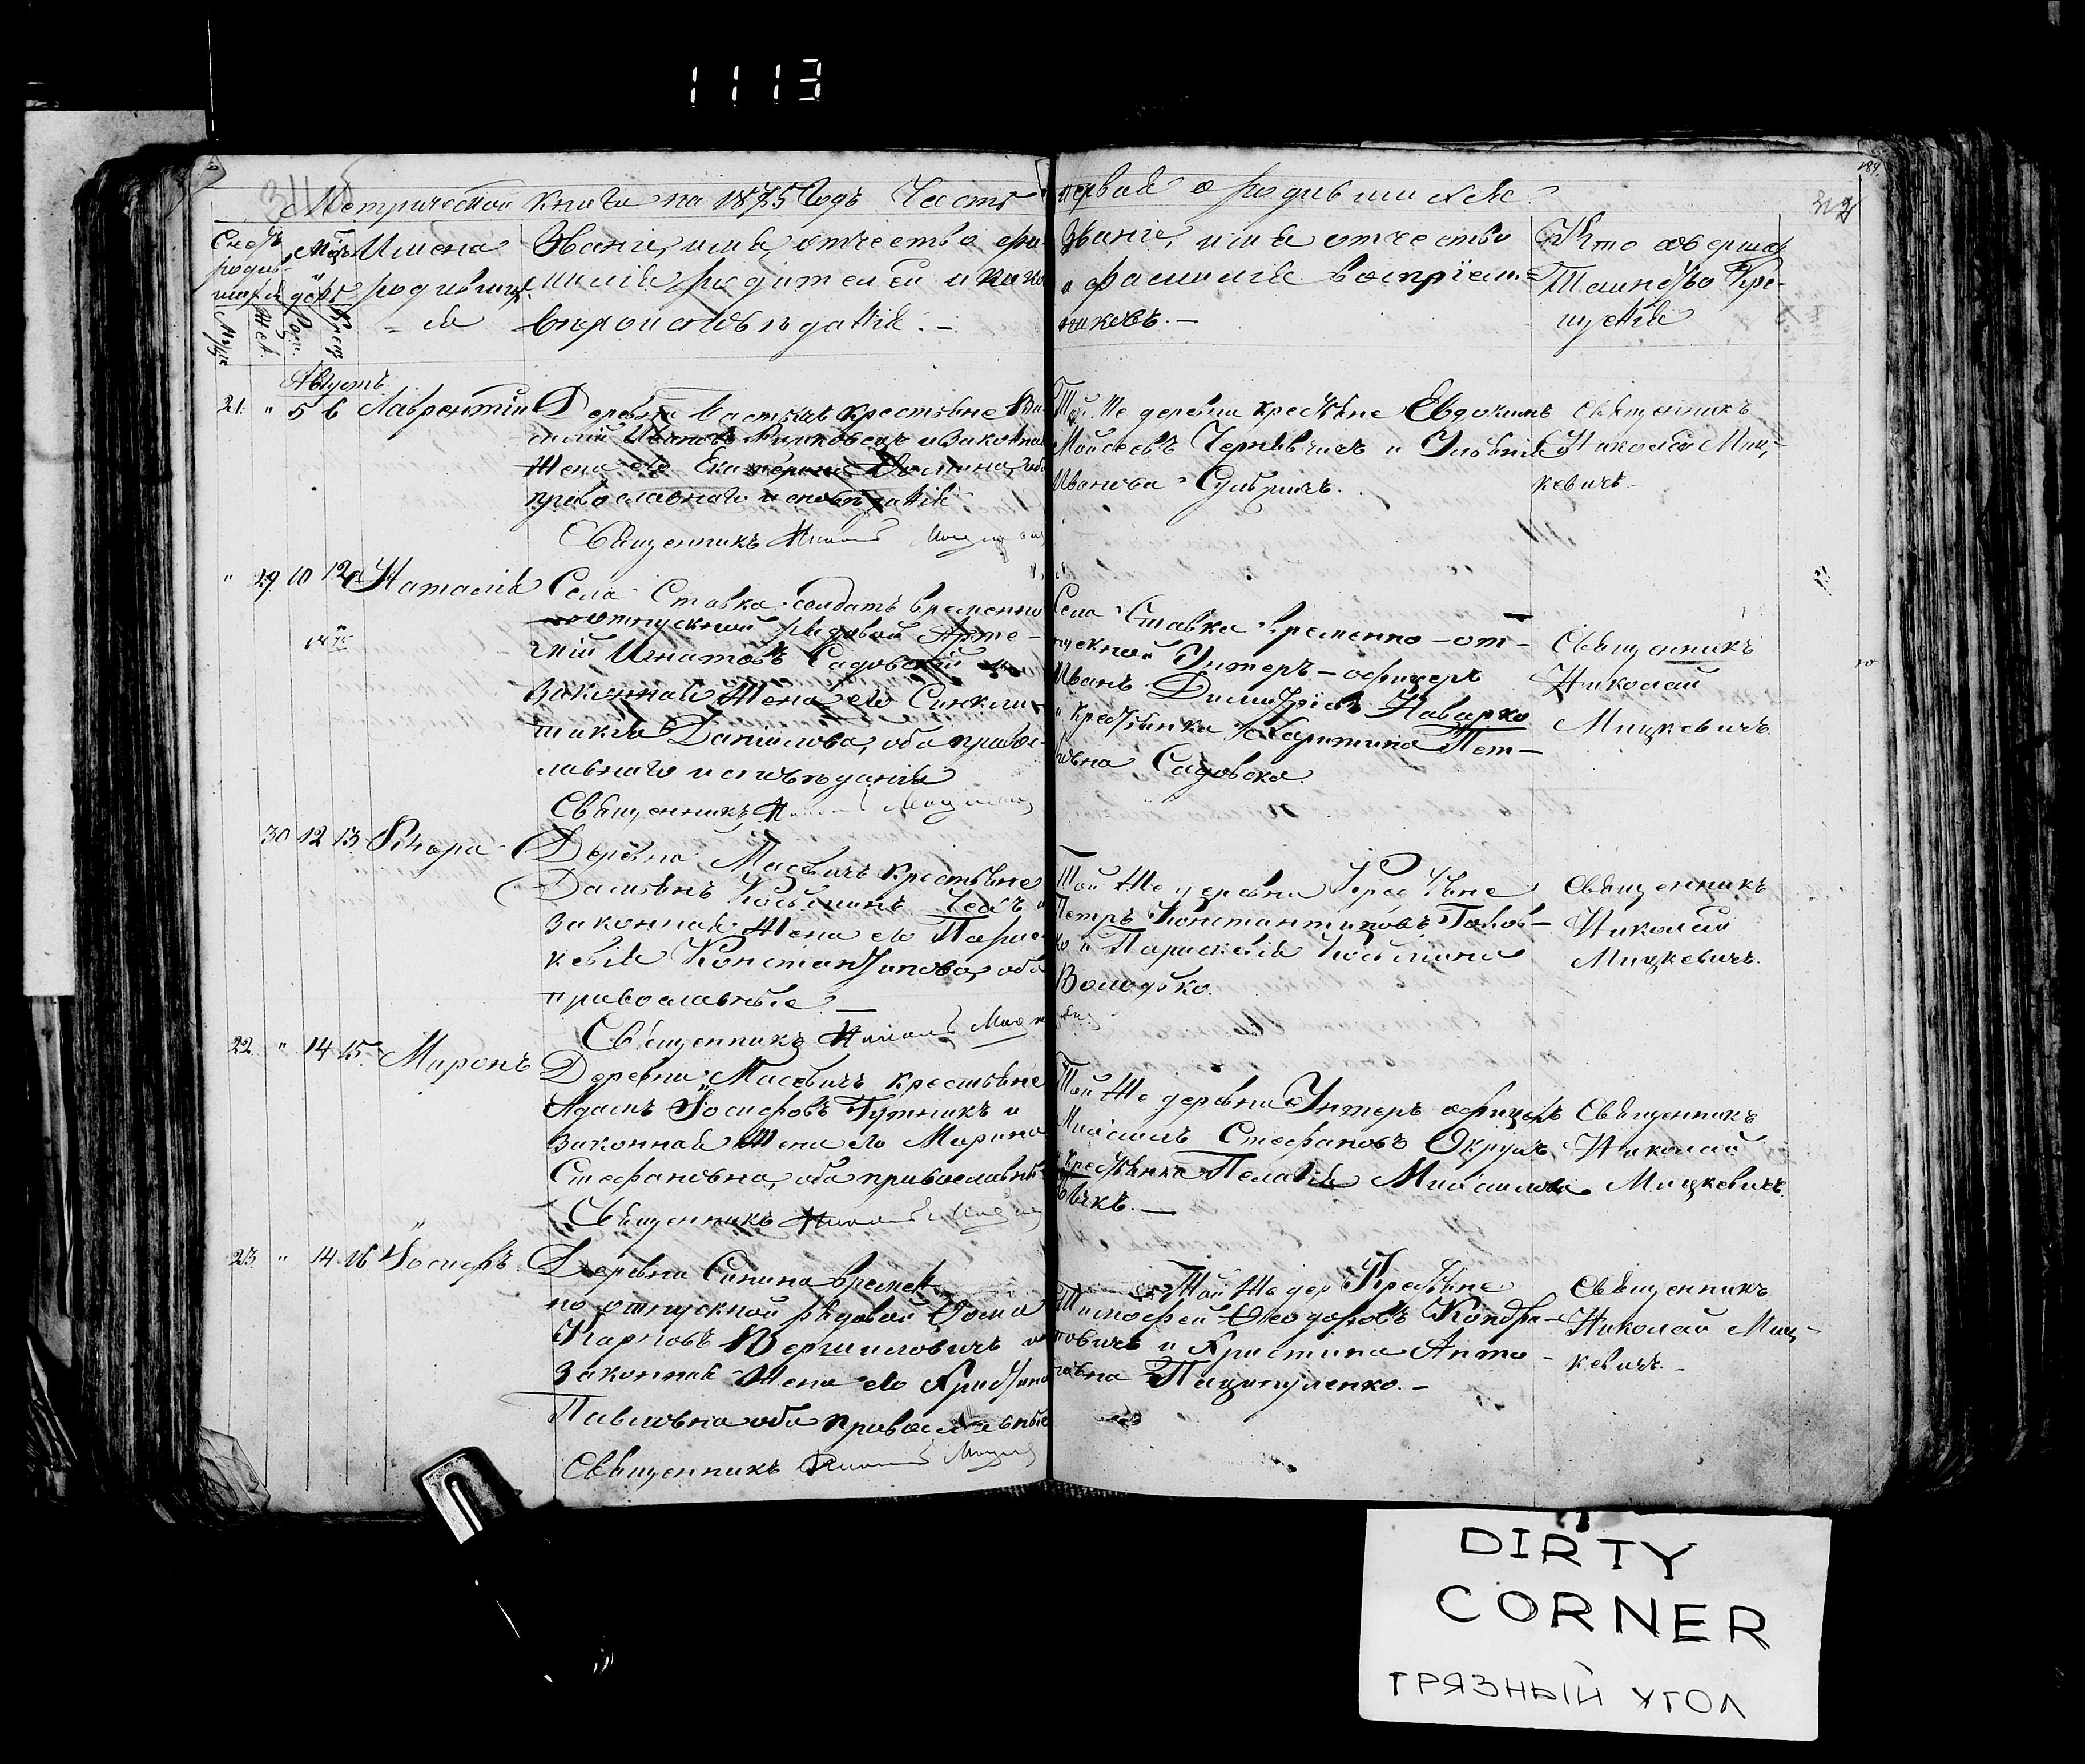 1113
189
Метрической книги на 1875 Годъ Часть первая о родившихся
Счетъ родив-
шихся
Муж.
Жен.
Мѣс.
и
день
Рож.
Крещ.
Имена
родивших
=ся
Званіе, имя, отчество, фа-
милія родителей и како
вѣроисповѣданія. –
Званіе, имя отчество
и фамилія воспріем=
никовъ. –
Кто совершал
Таинство Кре-
щенія
Августъ
21. " 5 6 Лаврентій
Деревни крестьяне Ва-
силій Ивановъ и законная
Жена его Екатерина оба
православнаго исповѣданія
Священникъ Николай
Той Же деревни крестьяне Евдокимъ
Моисеевъ и
Иванова
Священникъ
Николай Миц-
кевичъ.
" 29 10 12 Наталія
1875
Села Ставка солдатъ временно
отпускной рядовой Арте-
мій Игнатовъ Садовскій и
Законная Жена его Синкли-
тикія Даніилова, оба правос-
лавнаго исповѣданія
Священникъ
Села Ставка временно-от-
пускной Унтеръ-офицеръ
Иванъ Димитріевъ Наварко
и крестьянка Харитина Пет-
ровна Садовска.
Священникъ
Николай
Мицкевичъ.
30 12 13
Деревни Масевичъ крестьяне
Даміанъ Косьминъ и
Законная Жена его Парас-
кевія Константинова, оба
православные. –
Священникъ Николай
Той Же деревни Крестьяне
Петръ Константиновъ Голов-
ко и Параскевія Косьмина
Володько.
Священникъ
Николай
Мицкевичъ.
22. " 14 15. Миронъ
Деревни Масевичъ крестьяне
Адамъ Іосифовъ Гутникъ и
Законная Жена его Марина
Стефановна, оба православны
Священникъ Николай
Той Же деревни Унтеръ офицеръ
Михаилъ Стефановъ Окружъ
Крестьянка Пелагія Михаилова
Священникъ
Николай
Мицкевичъ
23. " 14 16 Іосифъ.
Деревни Синина времен-
но отпускной рядовой Ѳома
Карповъ Вершиловичъ и
Законная Жена его Христина
Павловна оба православные
Священникъ
Той Же дер Крестьяне
Тимофей Ѳеодоровъ Кондра-
товичъ и Христина Анто-
новна
Священникъ
Николай Миц-
кевичъ. –
DIRTY
CORNER
ГРЯЗНЫЙ УГОЛ